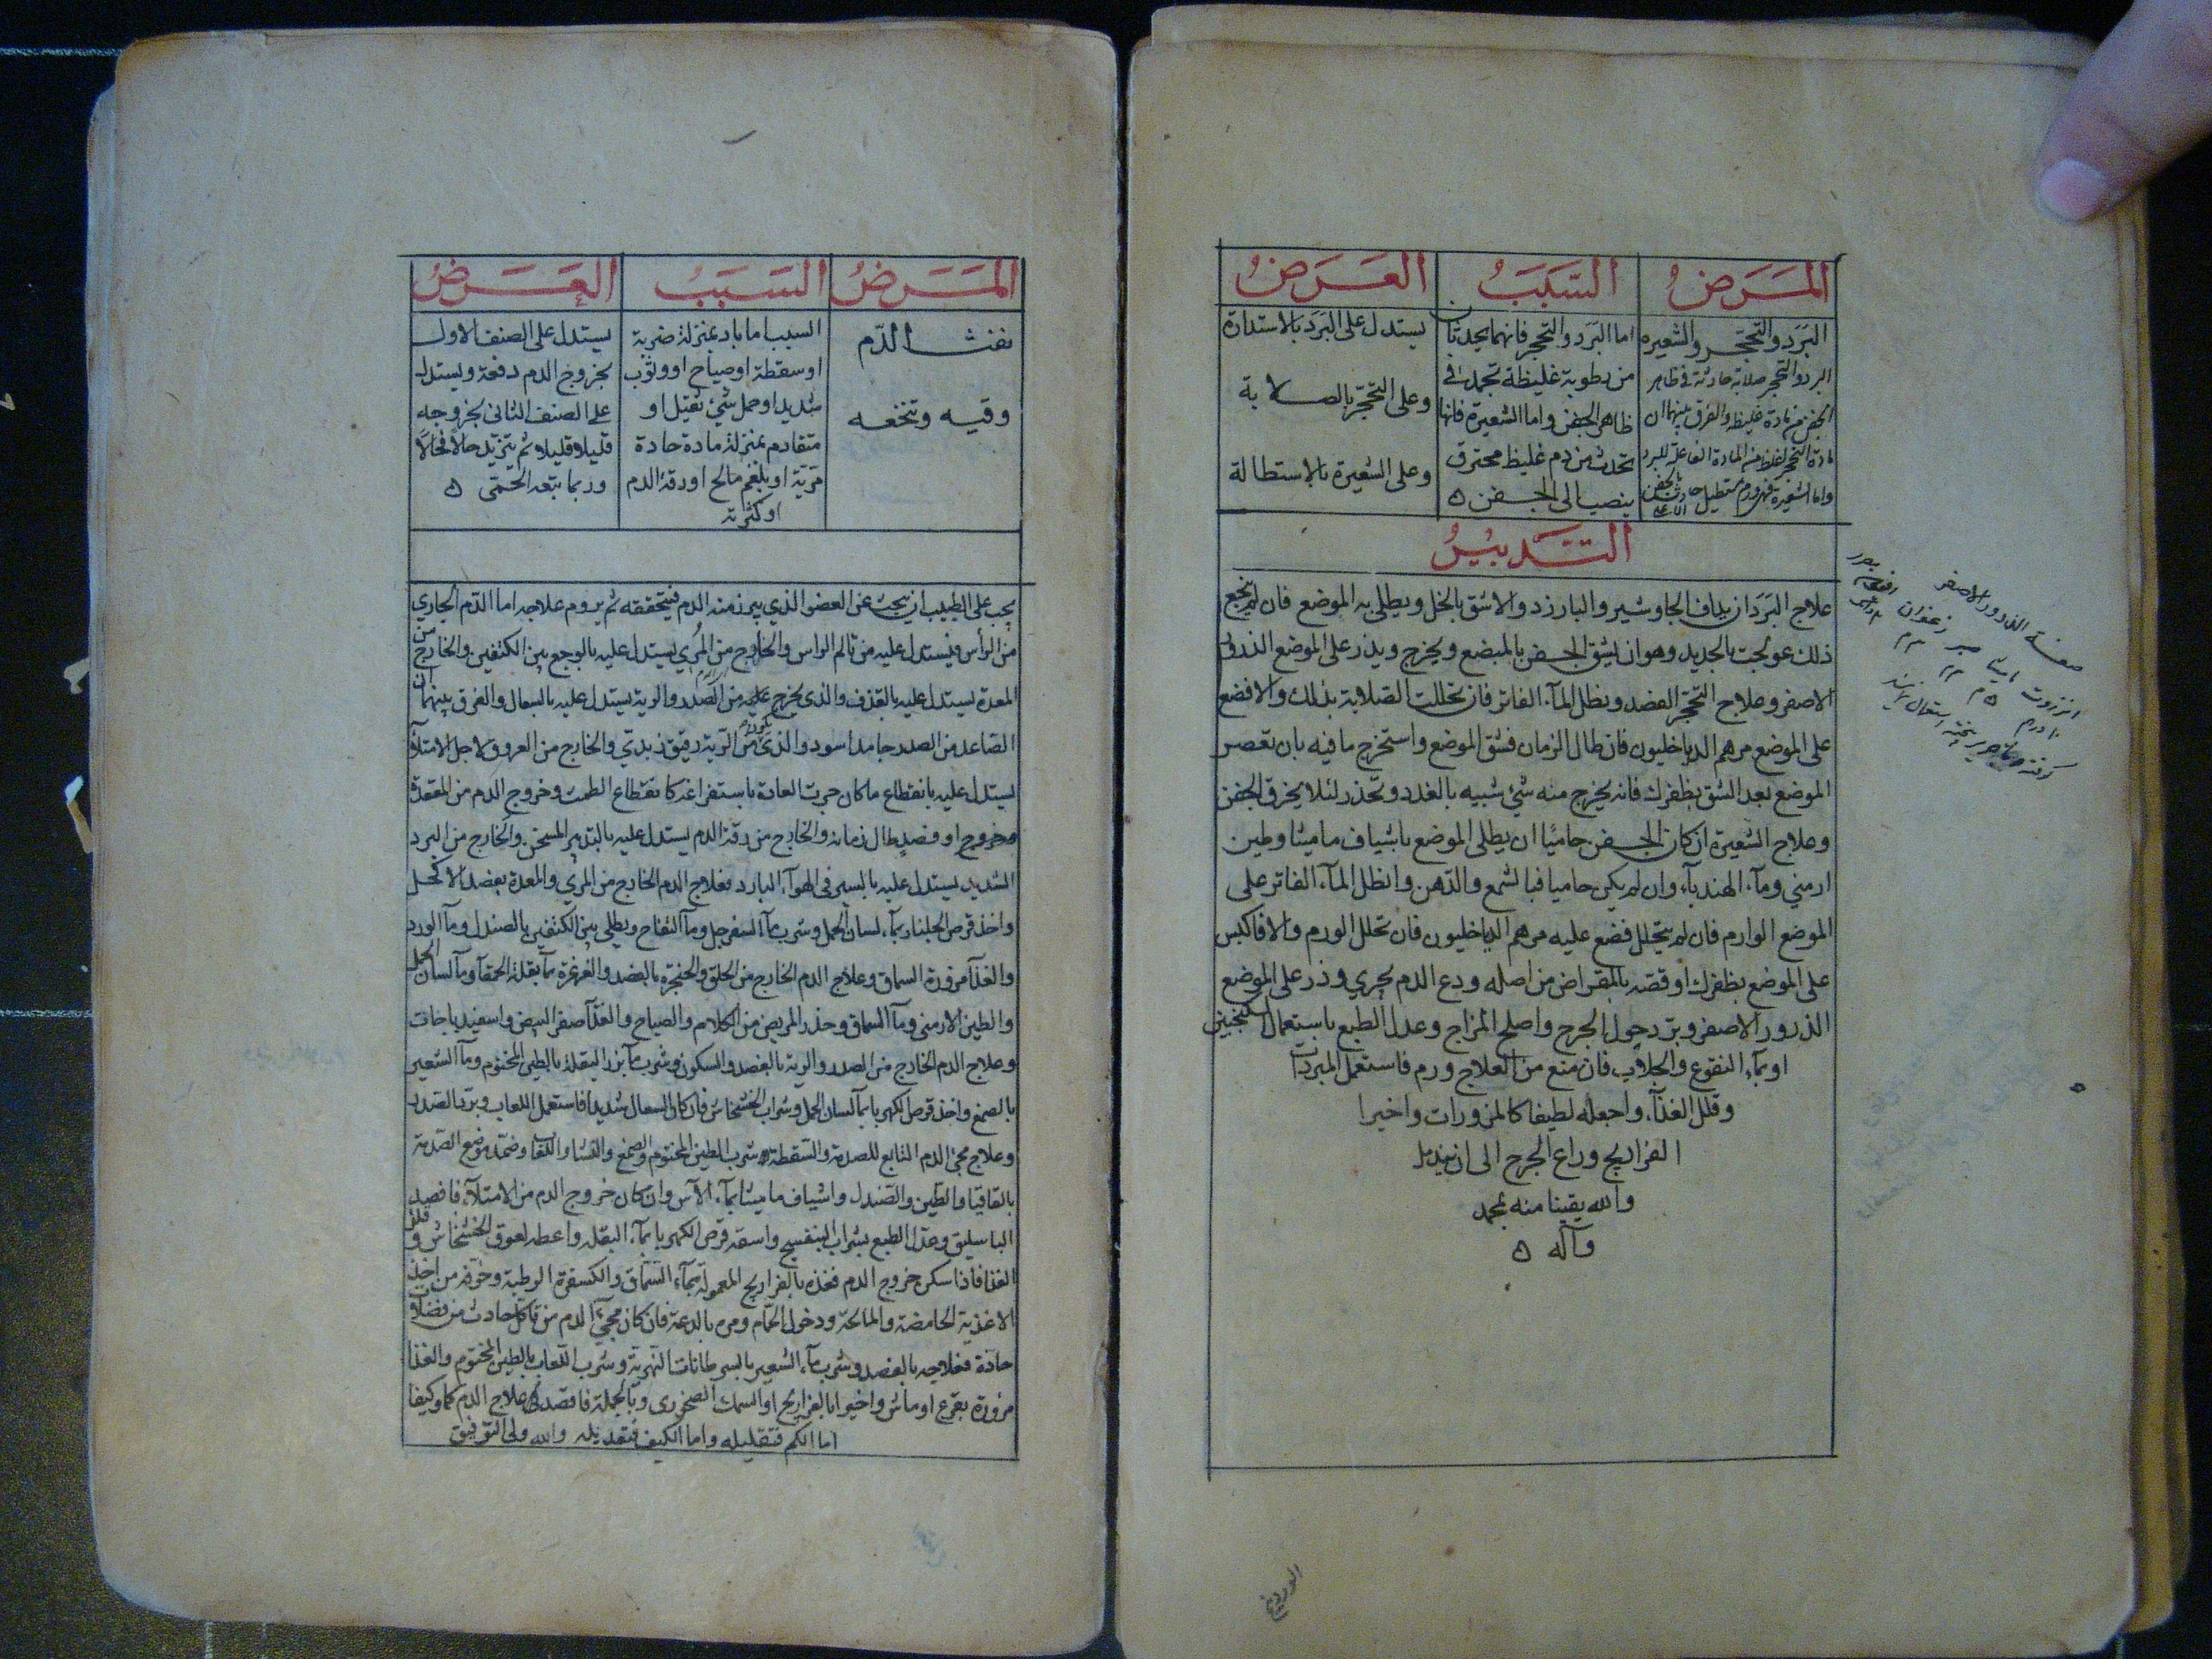 المرض
السبب
العرض
البرد والتحجر والشعيره
البرد والتحجر صلابة حادثة في ظاهر
الجفن من مادة غليظة والفرق بينهما ان
مادة التحجر اغلظ من المادة الفاعلة للبرد
واما الشعيرة فهى ورم مستطيل حادث بالجفن الاعلى
اما البرد والتحجر فانهما يحدثان
من رطوبة غليظة تجمد في
ظاهر الجفن واما الشعيرة فانها
تحدث من دم غليظ محترق
ينصب الى الجفن ه
يستدل على البرد بالاستدارة
وعلى التحجر بالصلابة
وعلى الشعيرة بالاستطالة
التدبير
علاج البرد ان يداف الجاوشير والبارزد والاشق بالخل ويطلى به الموضع فان لم ينجع
ذلك عولجت بالحديد وهو ان يشق الجفن بالمبضع ويخرج ويذر على الموضع الذرور
الاصفر وعلاج التحجر الفصد ونطل المآء الفاتر فان تحللت الصلابة بذلك والا فضع
على الموضع مرهم الدياخليون فان طال الزمان فشق الموضع واستخرج ما فيه بان تعصر
الموضع بعد الشق بظفرك فانه يخرج منه شئ شبيه بالغدد وتحذر لئلا يخرق الجفن
وعلاج الشعيرة ان كان الجفن حاميًا ان يطلى الموضع باشياف ماميثا وطين
ارمني ومآء الهندبآء وان لم يكن حاميا فبالشمع والدهن وانطل المآء الفاتر على
الموضع الوارم فان لم يتحلل فضع عليه مرهم الدياخليون فان تحلل الورم والا فاكبس
على الموضع بظفرك او قصه بالمقراض من اصله ودع الدم يجري وذر على الموضع
الذرور الاصفر وبرد حول الجرح واصلح المزاج وعدل الطبع باستعمال السكنجبين
او بمآء النقوع والجلاب فان منع من العلاج ورم فاستعمل المبردات
وقلل الغذآء واجعله لطيفا كالمزورات واخيرا
الفراريج وراع الجرح الى ان يندمل
والله يقينا منه بمحمد
وآله ه
صفة الذرور الاصفر
انزروت ماميثا صبر زعفران افيون
المرض
السبب
العرض
نفث الدم
وقيه وتنخعه
السبب اما باد بمنزلة ضربة
او سقطة او صياح او وثوب
شديد او حمل شئ ثقيل او
متقادم بمنزلة مادة حادة
مرية او بلغم مالح او رقة الدم
او كثرته
يستدل على الصنف الاول
بخروج الدم دفعة ويستدل
على الصنف الثاني بخروجه
قليلا قليلا وثم يتزيد حالاً فحالاً
وربما يتبعه الحمى ه
يجب على الطبيب ان يبحث عن العضو الذي يبرز منه الدم فيتحققه ثم يروم علاجه اما الدم الجاري
من الرأس فيستدل عليه من تالم الراس والخارج من المري يستدل عليه بالوجع بين الكتفين والخارج من
المعدة يستدل عليه بالقذف والذي يخرج من الصدر والرية يستدل عليه بالسعال والفرق بينهما ان
الصاعد من الصدر جامد اسود والذي يكون من الرية رقيق زبدي والخارج من العروق لاجل الامتلآء
يستدل عليه بانقطاع ما كان جرت العادة باستفراغه كانقطاع الطمث وخروج الدم من المقعدة
وخروج او فصد طال زمانه والخارج من رقة الدم يستدل عليه بالتدبير المسخن والخارج من البرد
الشديد يستدل عليه بالسير في الهوآء البارد فعلاج الدم الخارج من المري والمعدة بفصد الاكحل
واخذ قرص الجلنار بمآء لسان الحمل وشرب مآ السفرجل ومآ التفاح ويطلى بين الكتفين بالصندل ومآ الورد
والغذآ مزورة السماق وعلاج الدم الخارج من الحلق والحنجرة بالفصد والغرغرة بمآ بقلة الحمقآ ومآ لسان الحمل
والطين الارمني ومآ السماق وحذر المريض من الكلام والصياح والغذآ صفر البيض واسفيدباجات
وعلاج الدم الخارج من الصدر والرية بالفصد والسكون وشرب مآ بزر البقلة بالطين المختوم ومآ الشعير
بالصمغ واخذ قرص الكهربا بمآ لسان الحمل وشراب الخشخاش فان كان السعال شديدا فاستعمل اللعاب وبرد الصدر
وعلاج مجئ الدم التابع للصدمة والسقطة شرب الطين المختوم والصمغ والنشا واللعاب وضمد موضع الصدمة
بالقاقيا والطين والصندل واشياف ماميثا بمآء الآس وان كان خروج الدم من الامتلآء فافصد
الباسليق وعدل الطبع بشراب البنفسج واسقه قرص الكهربا بمآء البقلة واعطه لعوق الخشخاش وقلل
الغذا فاذا سكن خروج الدم فغذه بالفراريج المعمولة بمآء السماق والكسفرة الرطبة وخوفه من اخذ
الاغذية الحامضة والمالحة ودخول الحمام ومره بالدعة فان كان مجئ الدم من تاكل حادث من فضلات
حادة فعلاجه بالفصد وشرب مآء الشعير بالسرطانات النهرية وشرب اللعاب بالطين المختوم والغذا
مزورة بقرع او ماش واخيرا بالفراريج او السمك الصخوري وبالجملة فاقصد في علاج الدم كما وكيفا
اما الكم فتقليله واما الكيف فتعديله والله ولي التوفيق